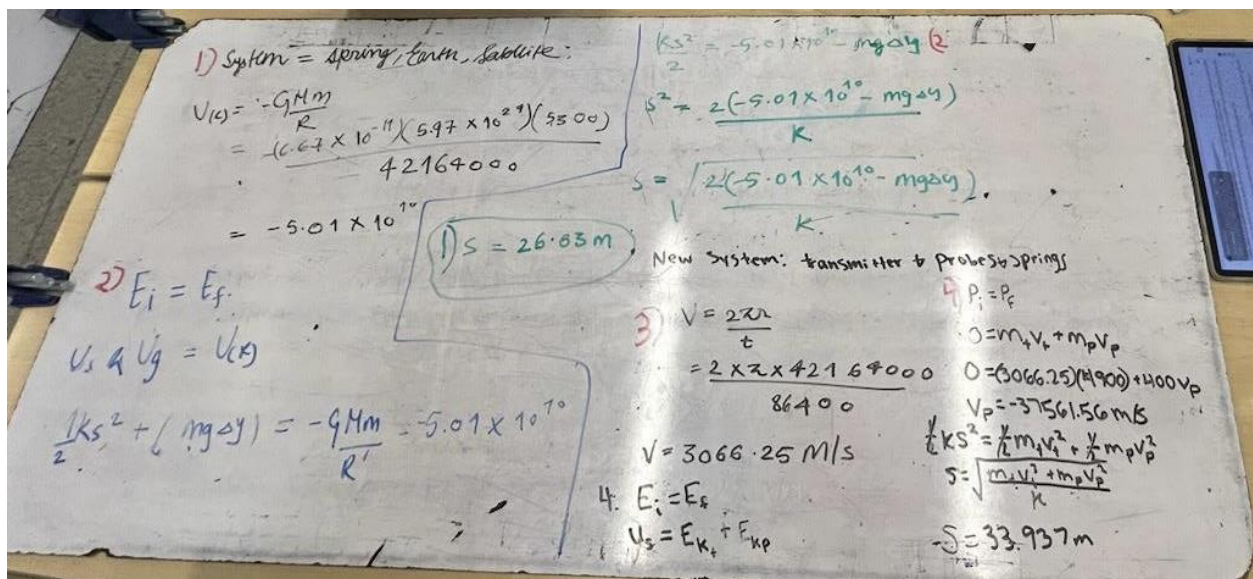 1) System = spring, Earth, Satellite:
U(r) = -GMm
R
= -(6.67 × 10^-11)(5.97 × 10^24)(5300)
42164000
= -5.01 × 10^10
2) Ei = Ef.
Us & Ug = U(r)
1/2 ks² + (mgΔy) = -GMm/R = -5.01 × 10^10
ks²/2 = -5.01×10^10 - mgΔy (2
s² = 2(-5.01 × 10^10 - mgΔy)
K
s = √2(-5.01 × 10^10 - mgΔy)
K.
1) S = 26.63 m
New System: transmitter & probes & springs
3) V = 2πr
t
= 2 × π × 42164000
86400
V = 3066.25 M/s
4. Ei = Ef
Us = Ek+ + Ekp
4) Pi = Pf
0 = m+v+ + mpvp
0 = (3066.25)(4900) + 400vp
Vp = -37561.56 m/s
1/2 KS² = 1/2 m+v+² + 1/2 mpvp²
S = √m+v+² + mpvp²
K
S = 33.937m